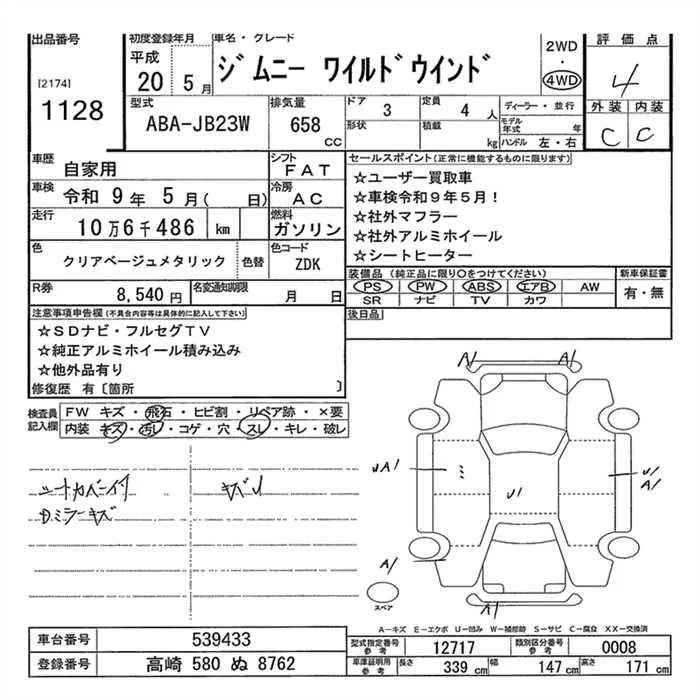 出品番号 初度登録年月 車名・グレード
[2174] 1128
平成 20 5月
ジムニー ワイルドウインド
2WD ・ 4WD
評価点 4
外装 内装
C C
型式 ABA-JB23W
排気量 658 CC
ドア 3 定員 4 人
形状 積載 kg
ディーラー・並行
モデル年式 年
ハンドル 左・右
車歴 自家用
シフト FAT
車検 令和 9年 5月( 日)
冷房 AC
走行 10万6千486 km
燃料 ガソリン
色 クリアベージュメタリック 色替
色コード ZDK
R券 8,540円 名変通知期限 月 日
セールスポイント(正常に機能するものに限ります)
☆ユーザー買取車
☆車検令和9年5月!
☆社外マフラー
☆社外アルミホイール
☆シートヒーター
装備品 (純正品に限り○をつけてください) 新車保証書
PS PW ABS エアB AW 有・無
SR ナビ TV カワ
後日品
注意事項申告欄(不具合内容等は具体的に記入して下さい)
☆SDナビ・フルセグTV
☆純正アルミホイール積み込み
☆他外品有り
修復歴 有〔箇所 〕
検査員記入欄 FW キズ・飛石・ヒビ割・リペア跡・×要
内装 キズ・汚レ・コゲ・穴・スレ・キレ・破レ
Dミラーキズ
A1 A1
UA1 U1 U1
A1
A1
A1
スペア
A-キズ E-エクボ U-凹み W-補修跡 S-サビ C-腐食 XX-交換済
車台番号 539433
登録番号 高崎 580 ぬ 8762
型式指定番号 参考 12717 類別区分番号 参考 0008
車庫証明用 参考 長さ 339 cm 幅 147 cm 高さ 171 cm